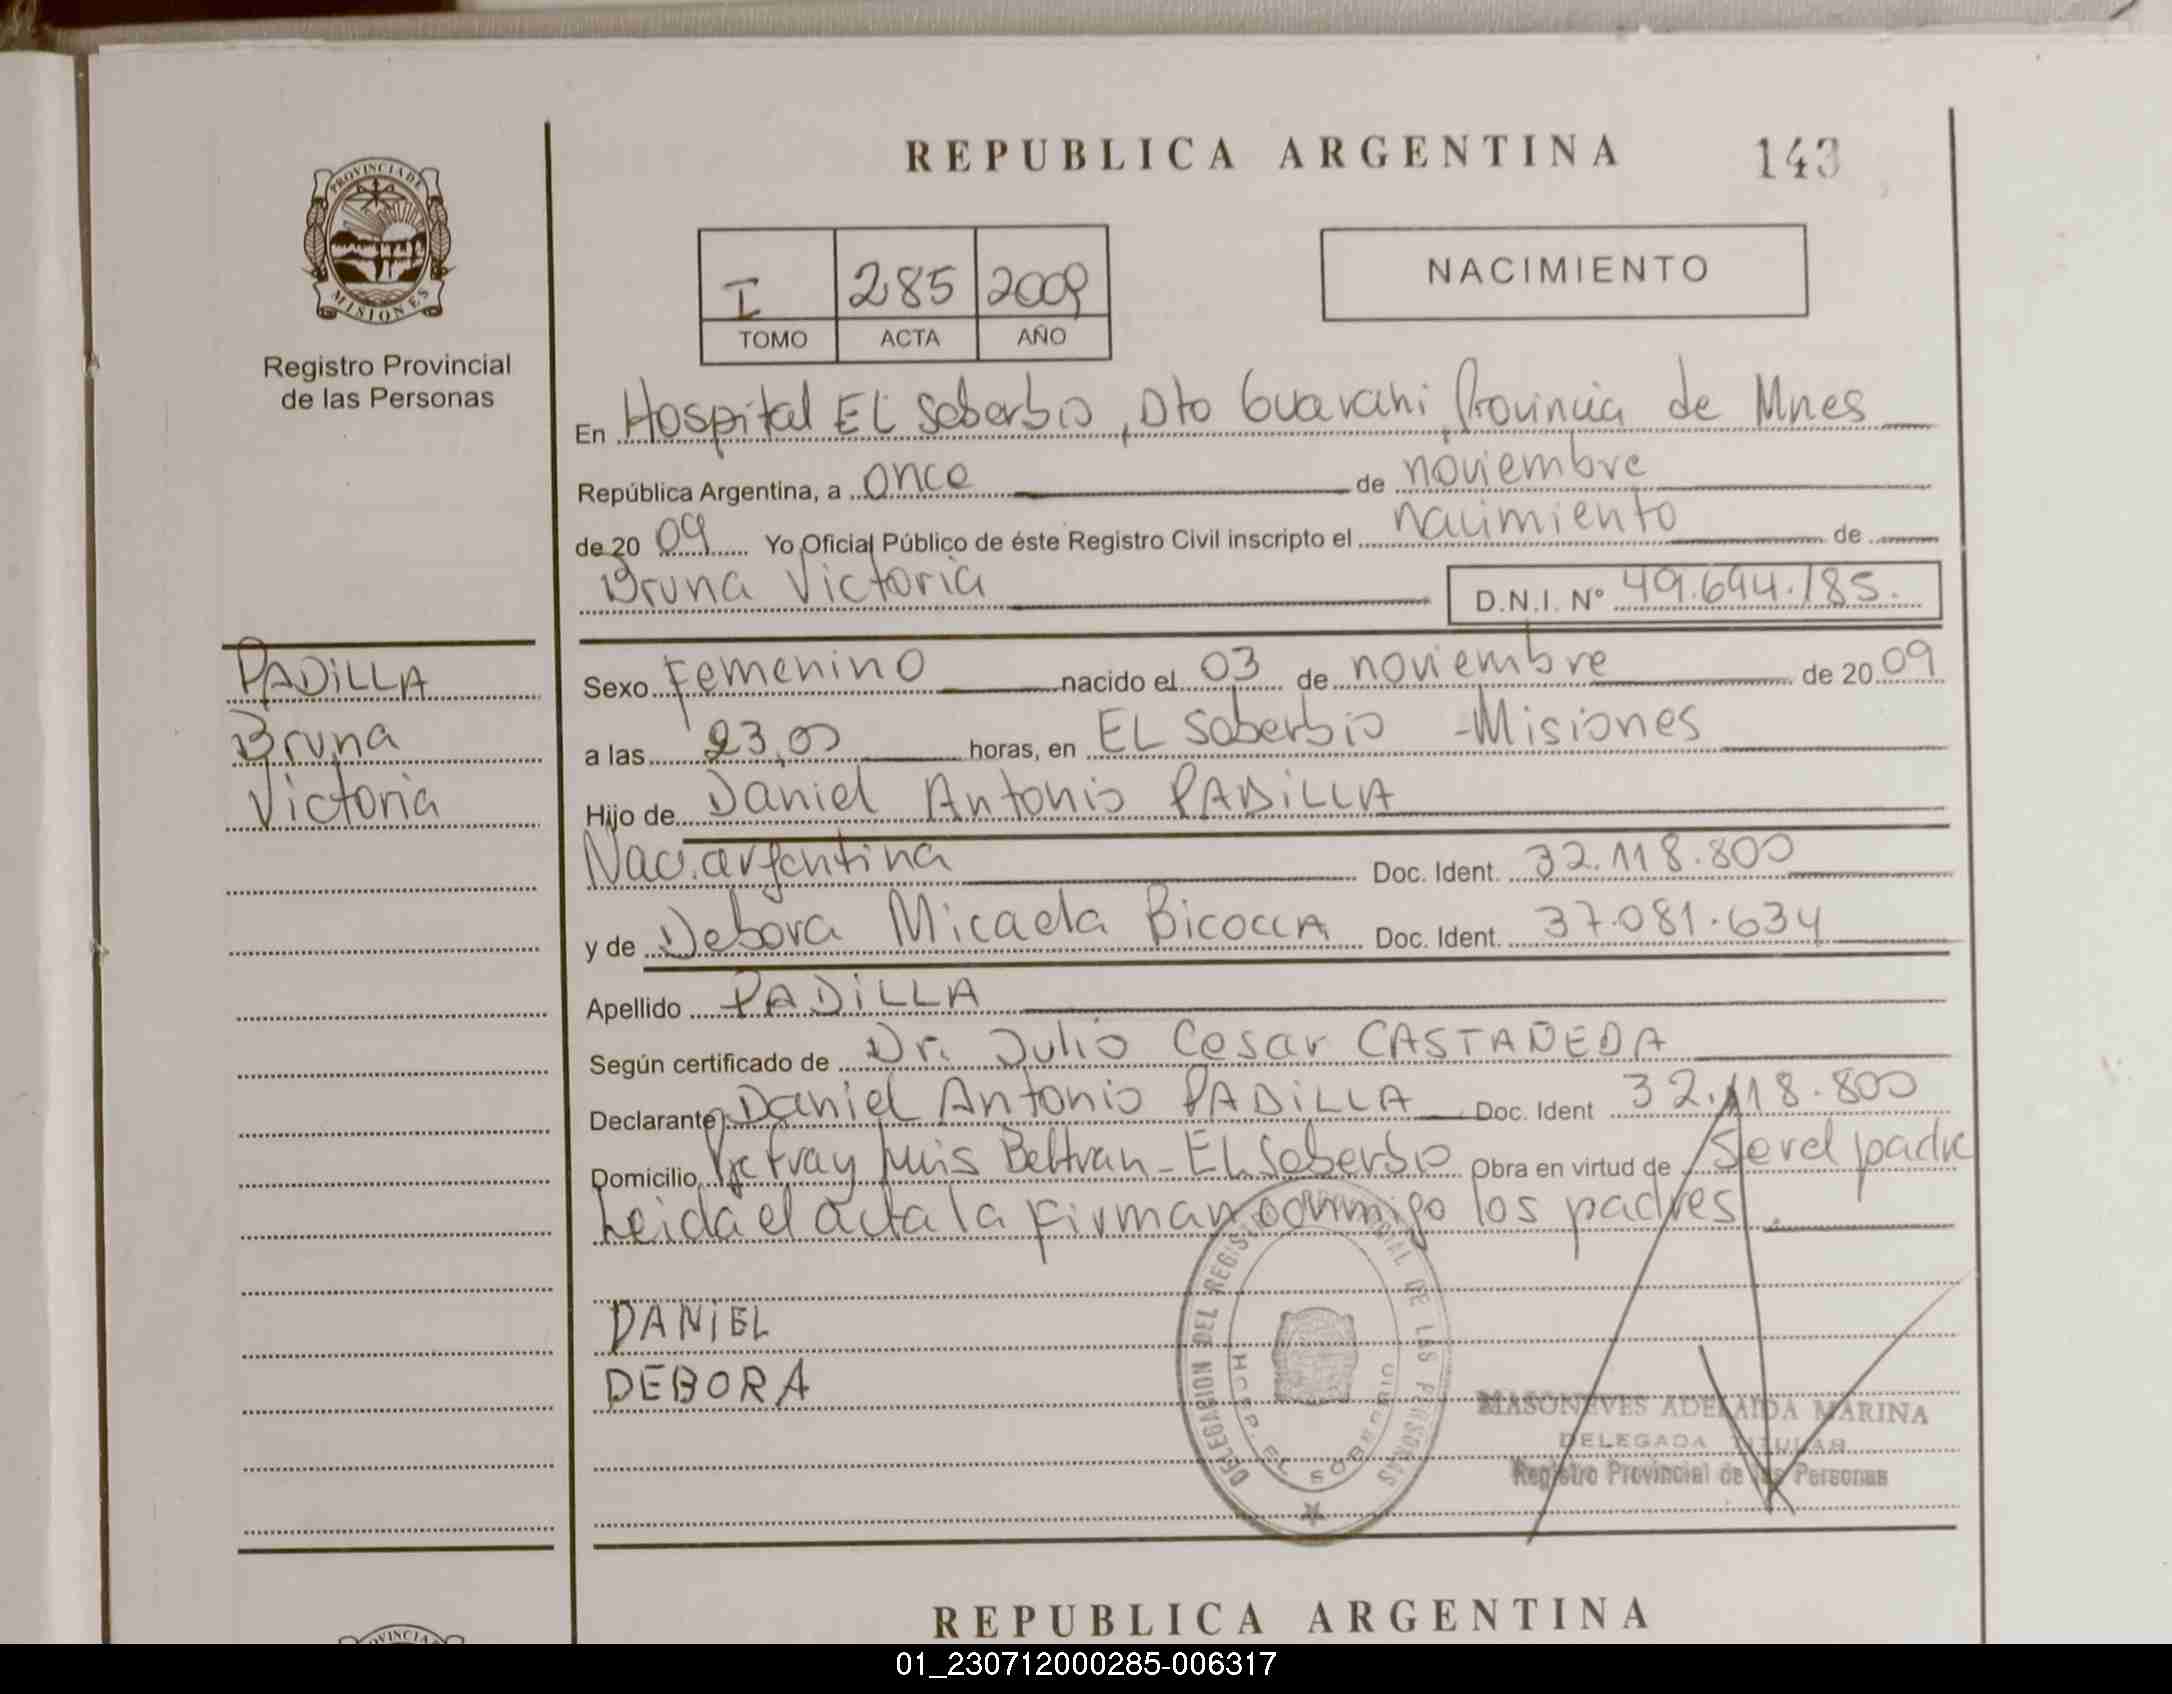 REPUBLICA ARGENTINA 143
PROVINCIA DE
MISIONES
Registro Provincial
de las Personas
I 285 2009
TOMO ACTA AÑO
NACIMIENTO
En Hospital EL Soberbio, Dto Guarani Provincia de Mnes
República Argentina, a once de noviembre
de 20 09 Yo Oficial Público de éste Registro Civil inscripto el nacimiento de
Bruna Victoria D.N.I. Nº 49.694.185.
PADiLLA
Bruna
Victoria
Sexo Femenino nacido el 03 de noviembre de 20 09
a las 23,00 horas, en EL Soberbio - Misiones
Hijo de Daniel Antonio PADiLLA
Nac. argentina Doc. Ident. 32.118.800
y de Debora Micaela BicoccA Doc. Ident. 37.081.634
Apellido PADiLLA
Según certificado de Dr. Julio Cesar CASTAÑEDA
Declarante Daniel Antonio PADiLLA Doc. Ident 32.118.800
Domicilio Fray Luis Beltran - EL Soberbio Obra en virtud de Ser el padre
Leida el acta la firman conmigo los padres.
DANiEL
DEBORA
DELEGACION DEL REGISTRO PROVINCIAL DE LAS PERSONAS
HOSP. EL SOBERBIO
MASONEVES ADELAIDA MARINA
DELEGADA TITULAR
Registro Provincial de las Personas
REPUBLICA ARGENTINA
01_230712000285-006317